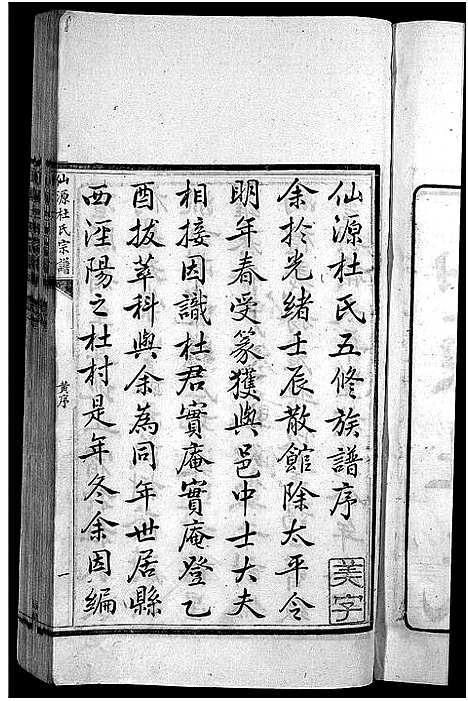 仙源杜氏五修族譜序
美字
余於光緒壬辰散館除太平令
明年春受篆獲與邑中士大夫
相接因識杜君實庵實庵登乙
酉拔萃科與余為同年世居縣
西涇陽之杜村是年冬余因編
仙源杜氏宗譜
黃序
一